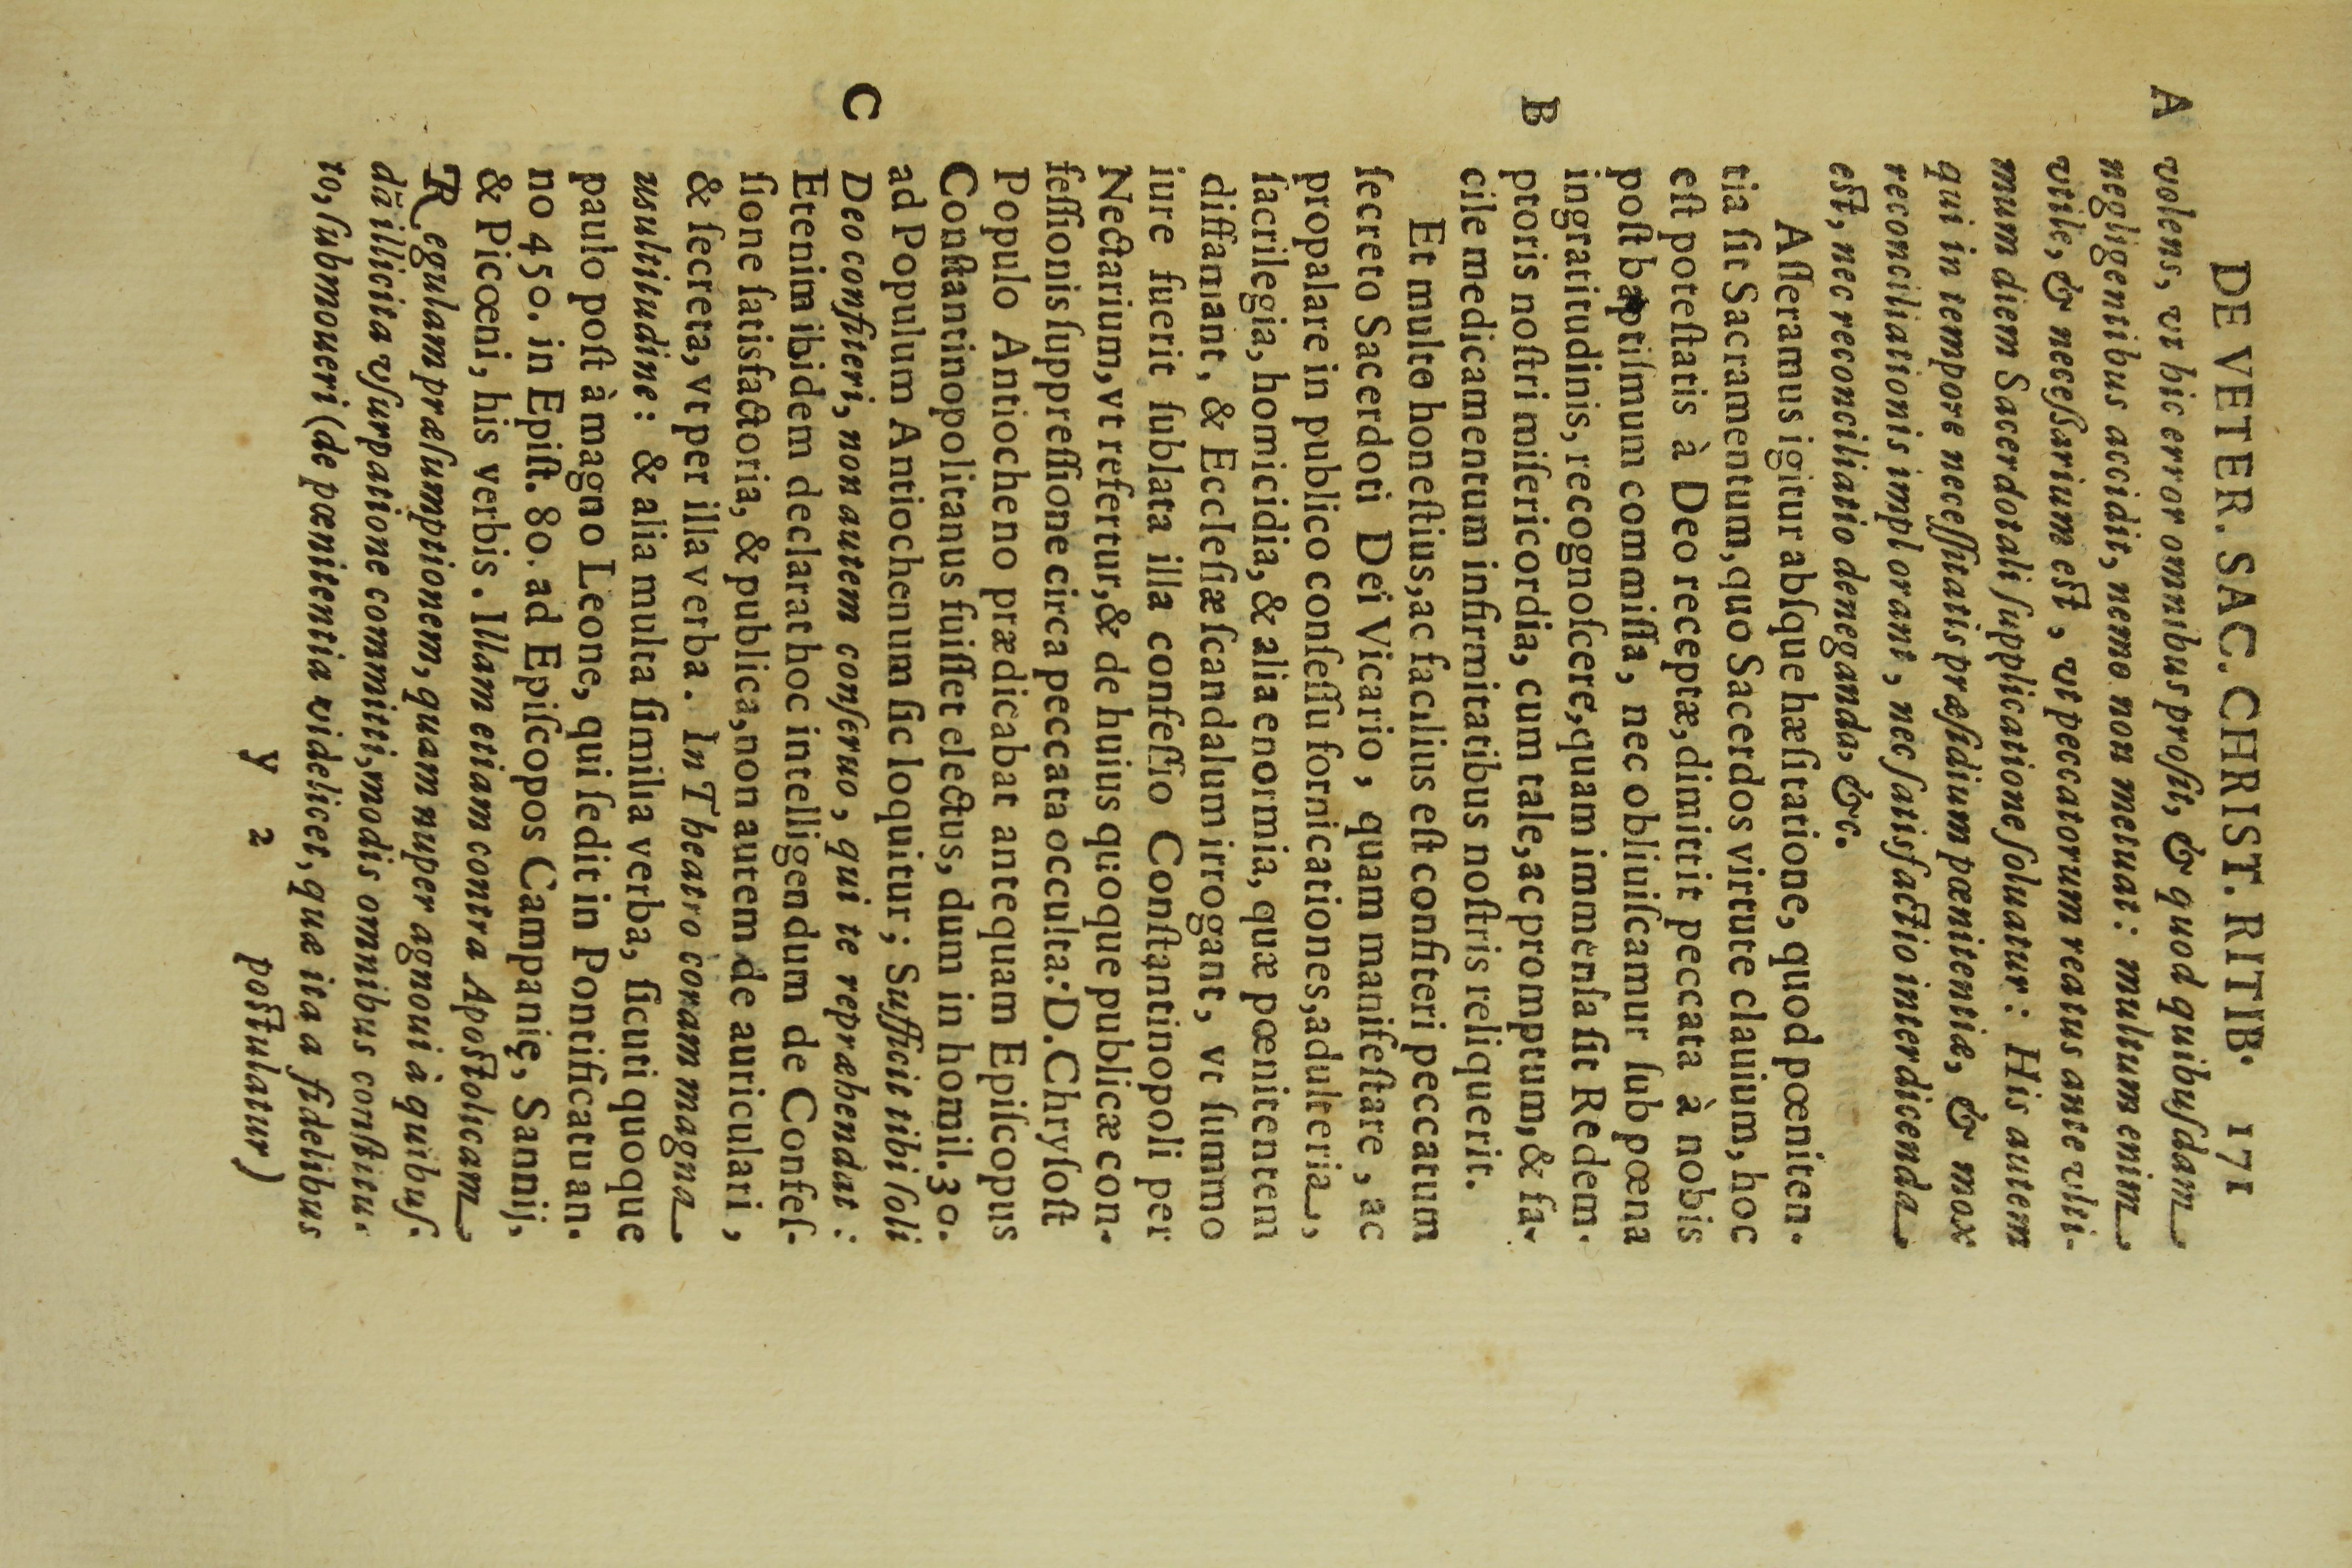 DE VETER. SAC. CHRIST. RITIB. 171
A volens, vt hic error omnibus proſit, & quod quibuſdam
negligentibus accidit, nemo non metuat: multum enim
vtile, & neceſſarium eſt, vt peccatorum reatus ante vlti-
mum diem Sacerdotali ſupplicatione ſoluatur: His autem
qui in tempore neceſſitatis præſidium pœnitentiæ, & mox
reconciliationis implorant, nec ſatisfactio interdicenda
eſt, nec reconciliatio deneganda, &c.
Aſſeramus igitur abſque hæſitatione, quod pœniten-
tia ſit Sacramentum, quo Sacerdos virtute clauium, hoc
eſt poteſtatis à Deo receptæ, dimittit peccata à nobis
poſt baptiſmum commiſſa, nec obliuiſcamur ſub pœna
B ingratitudinis, recognoſcere, quam immenſa ſit Redem-
ptoris noſtri miſericordia, cum tale, ac promptum, & fa-
cile medicamentum infirmitatibus noſtris reliquerit.
Et multo honeſtius, ac facilius eſt confiteri peccatum
ſecreto Sacerdoti Dei Vicario, quam manifeſtare, ac
propalare in publico conſeſſu fornicationes, adulteria,
ſacrilegia, homicidia, & alia enormia, quæ pœnitentem
diffamant, & Eccleſiæ ſcandalum irrogant, vt ſummo
iure fuerit ſublata illa confeſſio Conſtantinopoli per
Nectarium, vt refertur, & de huius quoque publicæ con-
feſſionis ſuppreſſione circa peccata occulta: D. Chryſoſt
Populo Antiocheno prædicabat antequam Epiſcopus
Conſtantinopolitanus fuiſſet electus, dum in homil. 30.
ad Populum Antiochenum ſic loquitur; Sufficit tibi ſoli
C Deo confiteri, non autem conſeruo, qui te repræhendat:
Etenim ibidem declarat hoc intelligendum de Confeſ-
ſione ſatisfactoria, & publica, non autem de auriculari,
& ſecreta, vt per illa verba. In Theatro coram magna
usultitudine: & alia multa ſimilia verba, ſicuti quoque
paulo poſt à magno Leone, qui ſedit in Pontificatu an-
no 450. in Epiſt. 80. ad Epiſcopos Campanię, Sannij,
& Picœni, his verbis. Illam etiam contra Apoſtolicam
Regulam præſumptionem, quam nuper agnoui à quibuſ-
dā illicita vſurpatione committi, modis omnibus conſtitu-
to, ſubmoueri (de pœnitentia videlicet, quæ ita a fidelibus
y 2 poſtulatur)